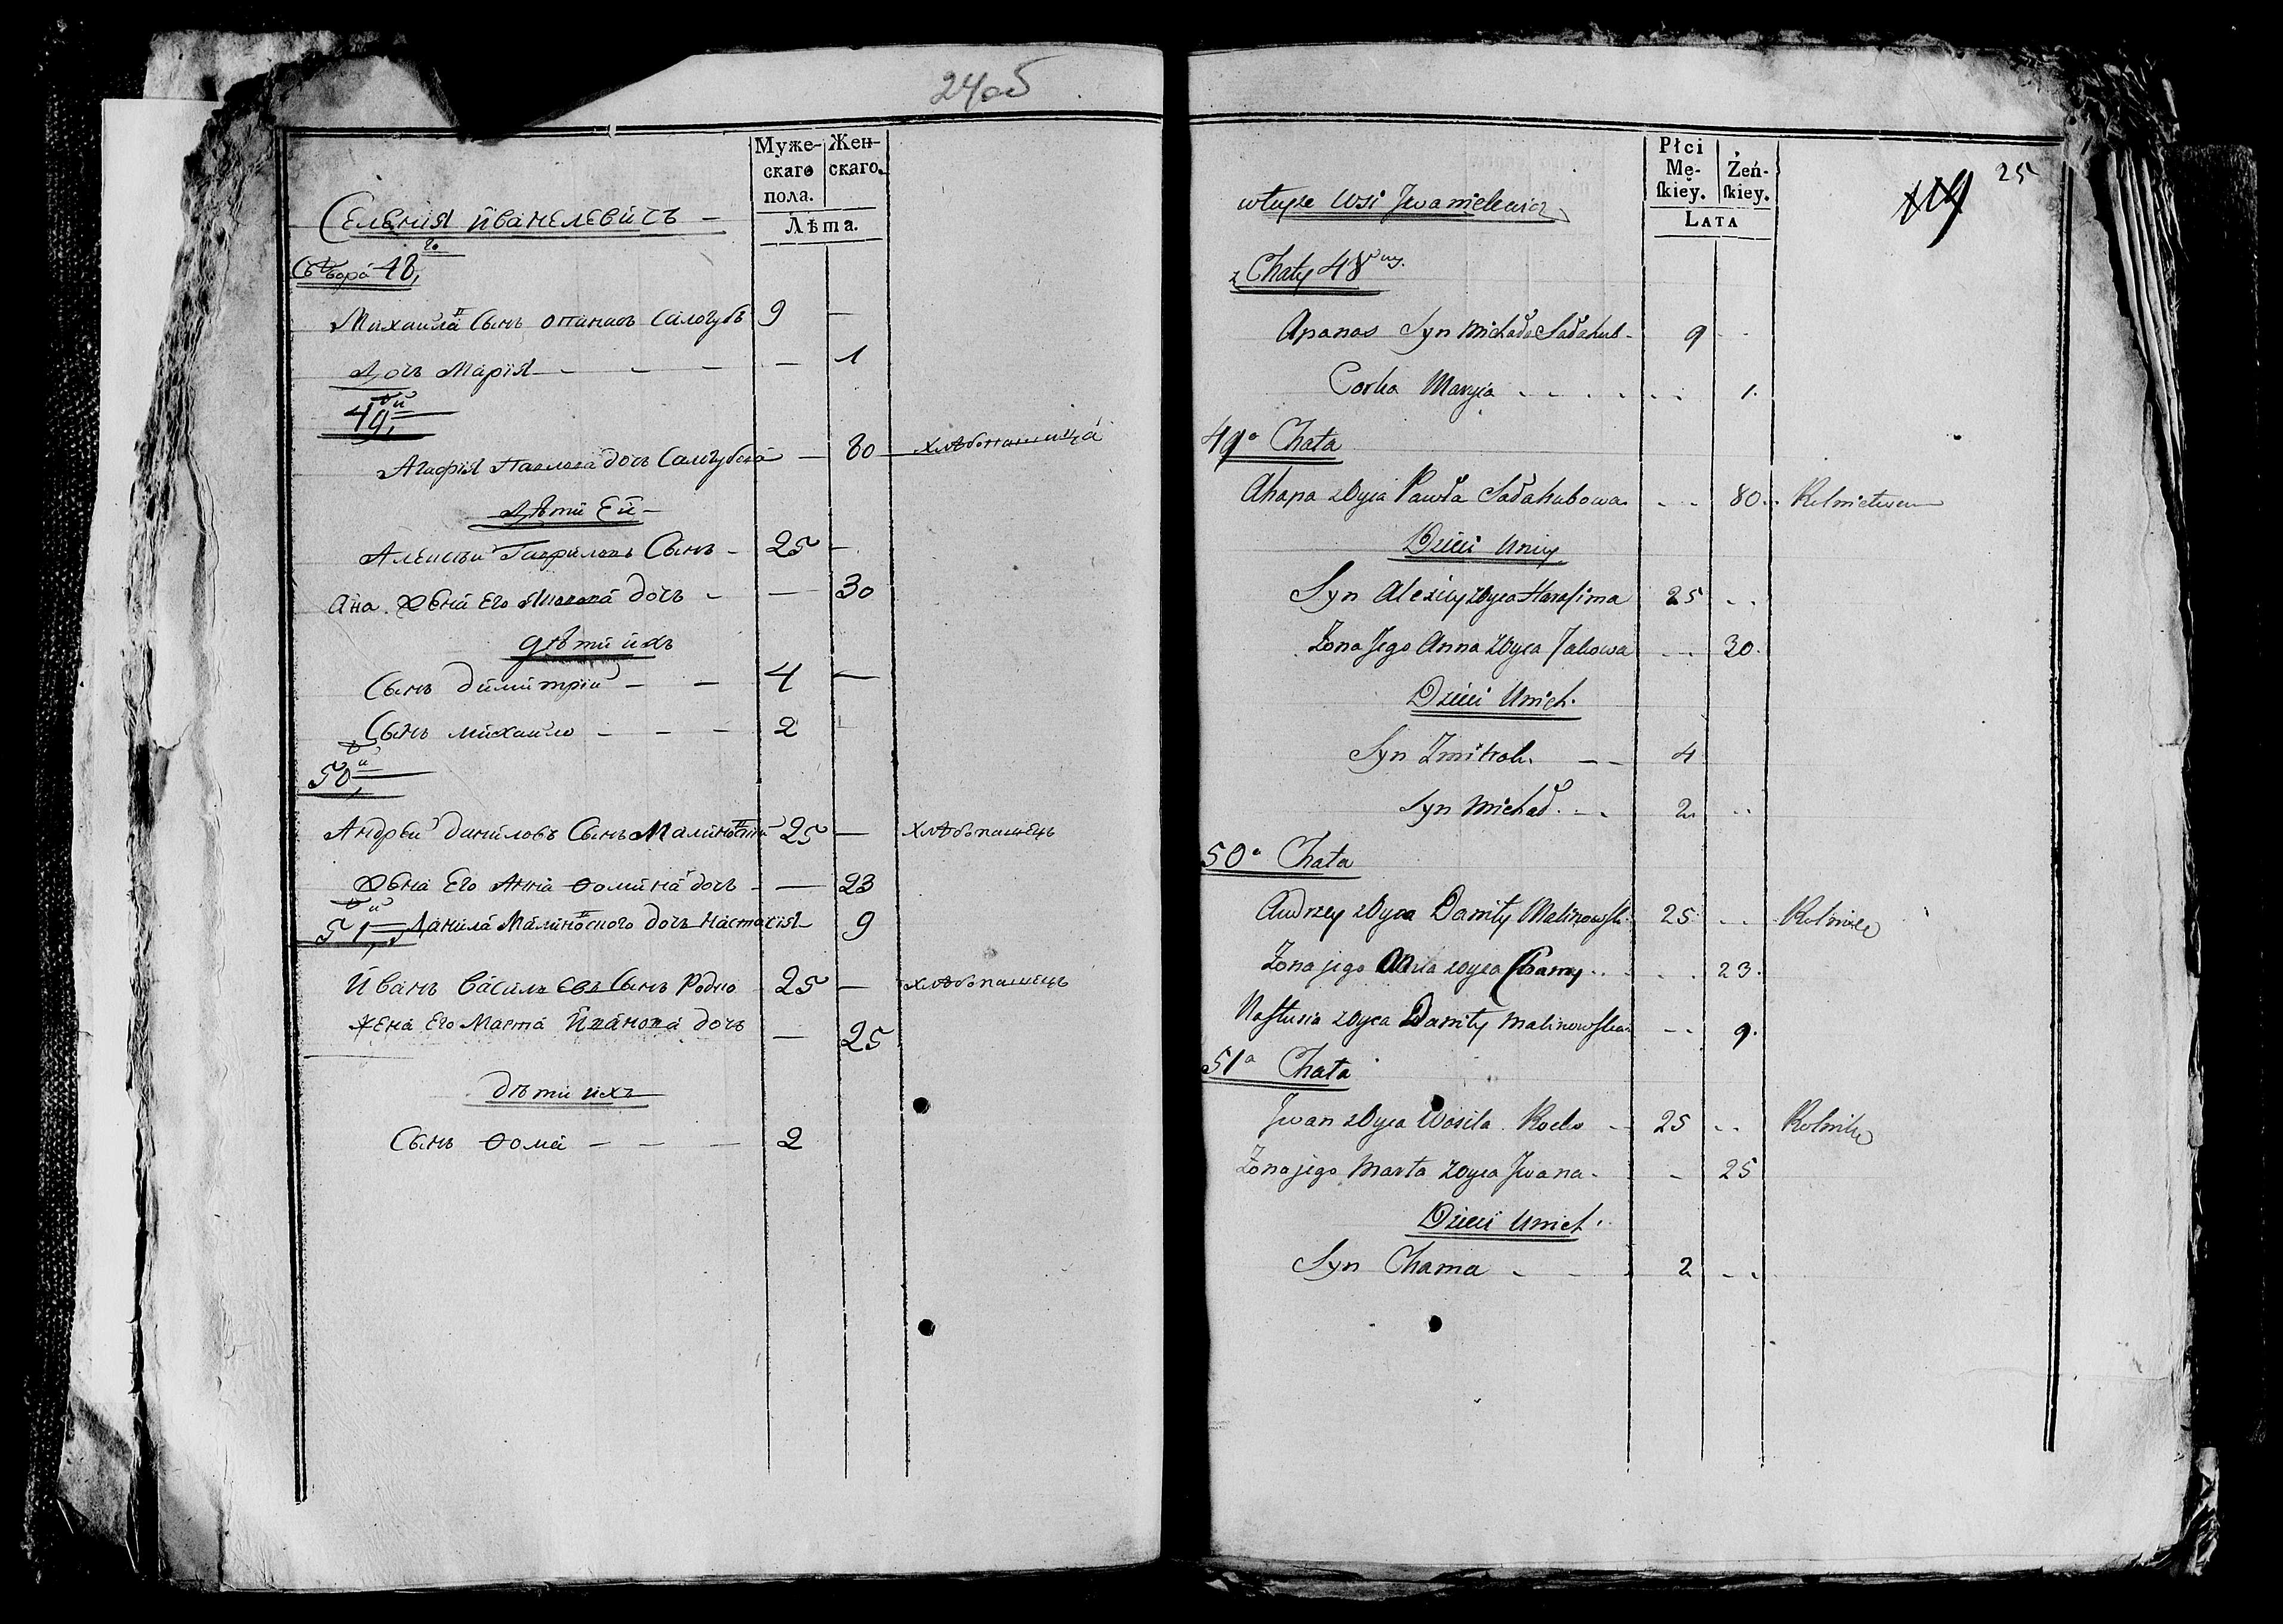 24об
Муже-
скаго
пола.
Жен-
скаго.
Лѣта.
Селения Иванелевичъ
Съ двора 48го
Михаила Сынъ опанасъ Салогубъ 9 —
Дочь Мария — — — — 1
49й
Агафия Павлова дочь Салогубова — 80 хлѣбопашица
Дѣти Ей
Алексѣй Гавриловъ Сынъ — 25 —
Анна Жѣна Его дочь — — 30
дѣти ихъ
Сынъ димитрий — — 4 —
Сынъ михайло — — — 2
50й
Андрѣй даниловъ Сынъ Малиновский 25 — хлѣбопашецъ
Жѣна Его Анна Ѳомина дочь — — 23
Данила Малиновского дочь Настасия 9
51й
Иванъ Василь евъ Сынъ Родко 25 — хлѣбопашецъ
жена Его Марта Иванова дочь — 25
дѣти ихъ
Сынъ Ѳома — — — 2
Płci
Mę-
ſkiey.
Żeń-
ſkiey.
LATA
25
wteyże Wsi Jwanielewicz
z Chaty 48
Apanas Syn Michała Sałahub 9 ..
Corka Maryia . . . . . . 1.
49a Chata
Ahapa Oyca Pawła Sałahubowa .. 80. Rolnictwem
Dzieci Uniey
Syn Alexiey Oyca Harasima 25 ..
Żona Jego Anna Oyca Jakowa .. 30.
Dzieci Unich.
Syn Zmitrok. — — 4
Syn Michał. . — 2 ..
50a Chata
Andrzey Oyca Daniły Malinowski 25 .. Rolnik
Żona jego Anna Oyca Chamy .. .. 23.
Nastusia Oyca Daniły Malinowska .. 9.
51a Chata
Jwan Oyca Wasila Rodko — 25 .. Rolnik
Żona jego Marta Oyca Jwana - - 25
Dzieci Unich.
Syn Chama - - 2 ..